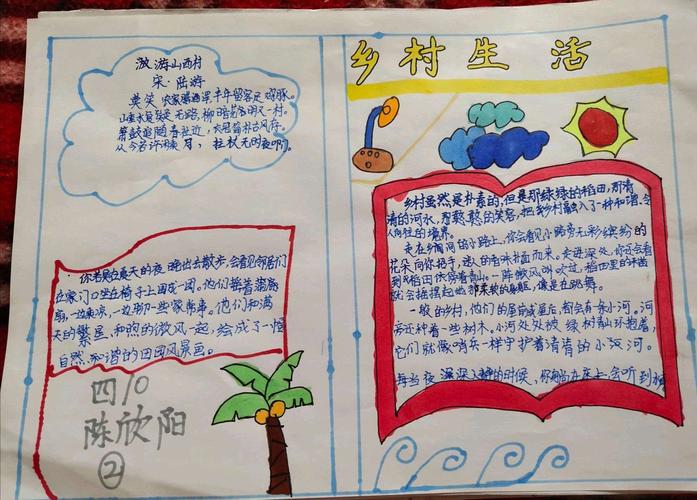 乡村生活
游山西村
宋·陆游
莫笑农家腊酒浑丰年留客足鸡豚。
山重水复疑无路,柳暗花明又一村。
箫鼓追随春社近,衣冠简朴古风存。
从今若许闲乘月,拄杖无时夜叩门。
你若是在夏天的夜晚出去散步,会看见邻居们
在家门口坐在椅子上围成一团。他们拿着蒲扇
扇,一边乘凉,一边聊一些家常事。他们和满
天的繁星,和煦的微风一起,绘成了一幅
自然,和谐的田园风景画。
四10
陈欣阳
②
乡村虽然是朴素的,但是那绿绿的稻田,清
清的河水,憨憨的笑容,把乡村融入了一种和谐,令
人向往的境界。
走在乡间的小路上,你会看见小路旁五彩缤纷的
花朵向你招手,迷人的香味扑面而来。走进深处,你还会看
到稻田依偎着青山。一阵微风吹过,稻田里的稻苗
就会摇摆起他那柔软的身躯,像是在跳舞。
一般的乡村,他们的屋前或屋后,都会有一条小河。河
旁还种着一些树木。小河处处被绿树青山环抱着,
它们就像哨兵一样守护着清清的小河。
每当夜深人静的时候,你躺在床上,会听到